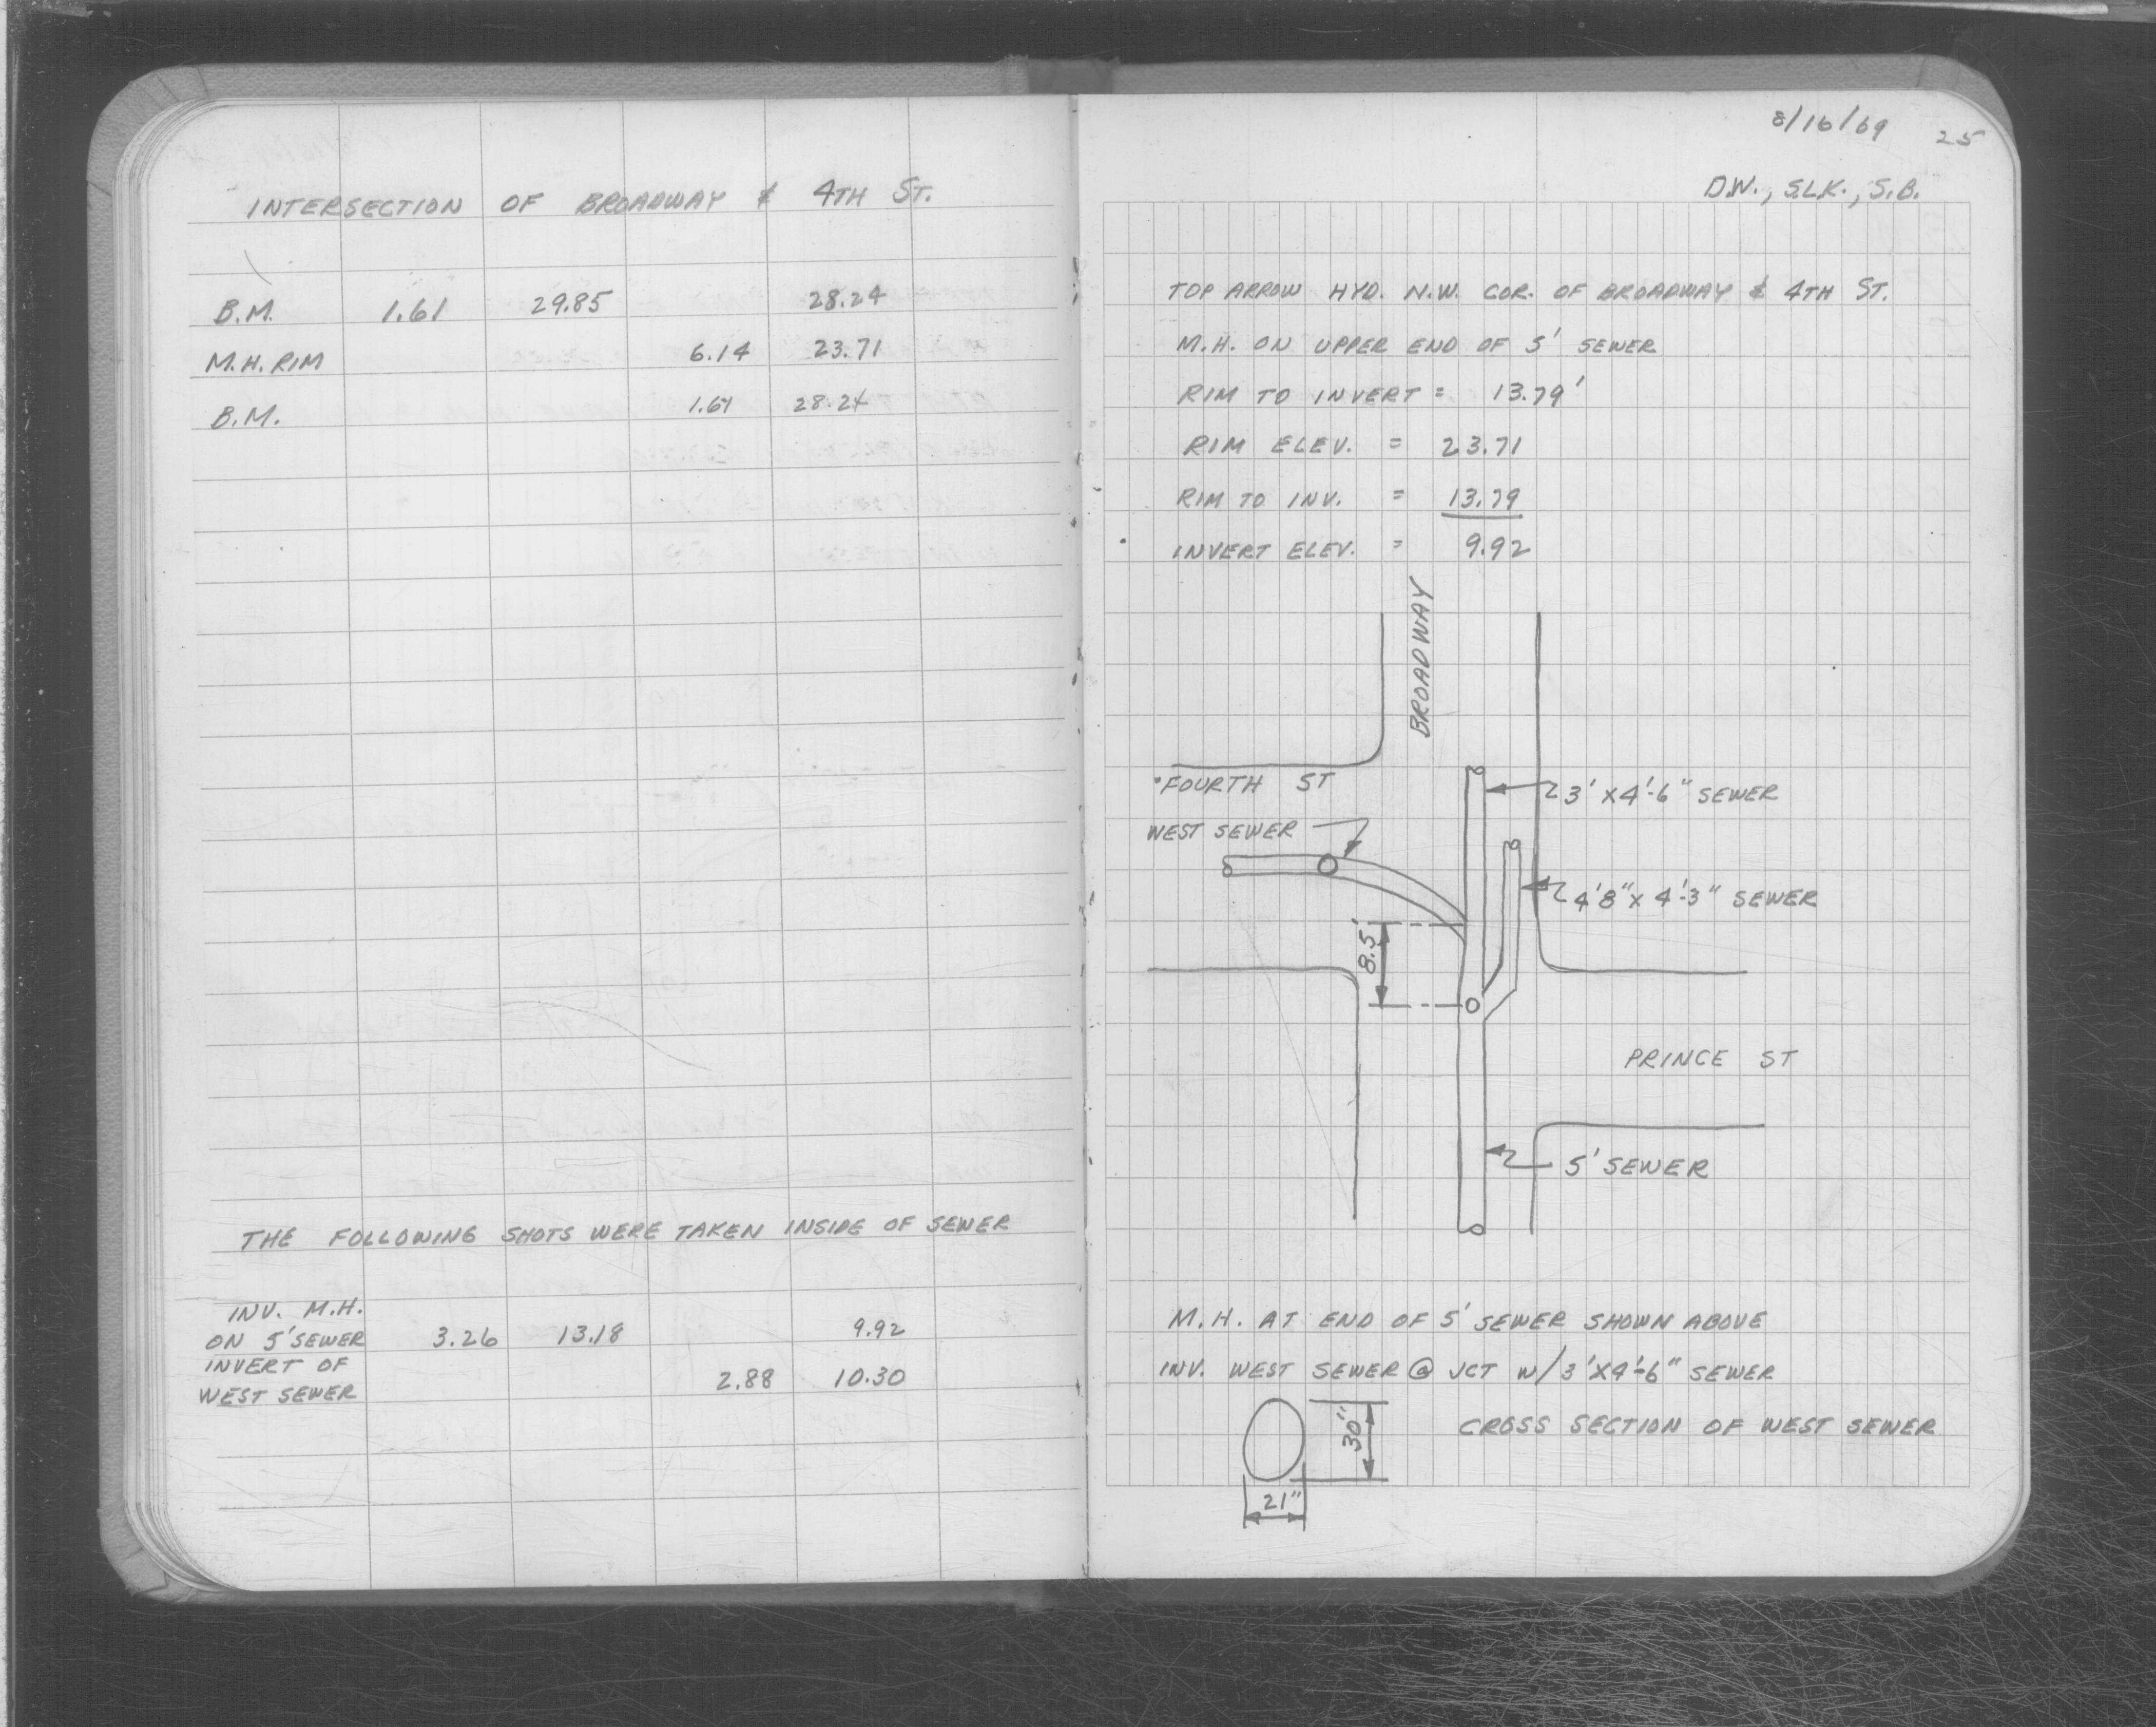 INTERSECTION OF BROADWAY & 4TH ST.
B.M. 1.61 29.85 28.24
M.H. RIM 6.14 23.71
B.M. 1.61 28.24
THE FOLLOWING SHOTS WERE TAKEN INSIDE OF SEWER
INV. M.H.
ON 5' SEWER 3.26 13.18 9.92
INVERT OF
WEST SEWER 2.88 10.30
8/16/69 25
D.W., S.L.K., S.B.
TOP ARROW HYD. N.W. COR. OF BROADWAY & 4TH ST.
M.H. ON UPPER END OF 5' SEWER
RIM TO INVERT = 13.79'
RIM ELEV. = 23.71
RIM TO INV. = 13.79
INVERT ELEV. = 9.92
BROADWAY
FOURTH ST
3' X 4'-6" SEWER
WEST SEWER
4'8" X 4'-3" SEWER
8.5'
PRINCE ST
5' SEWER
M.H. AT END OF 5' SEWER SHOWN ABOVE
INV. WEST SEWER @ JCT W/ 3' X 4'-6" SEWER
30"
CROSS SECTION OF WEST SEWER
21"